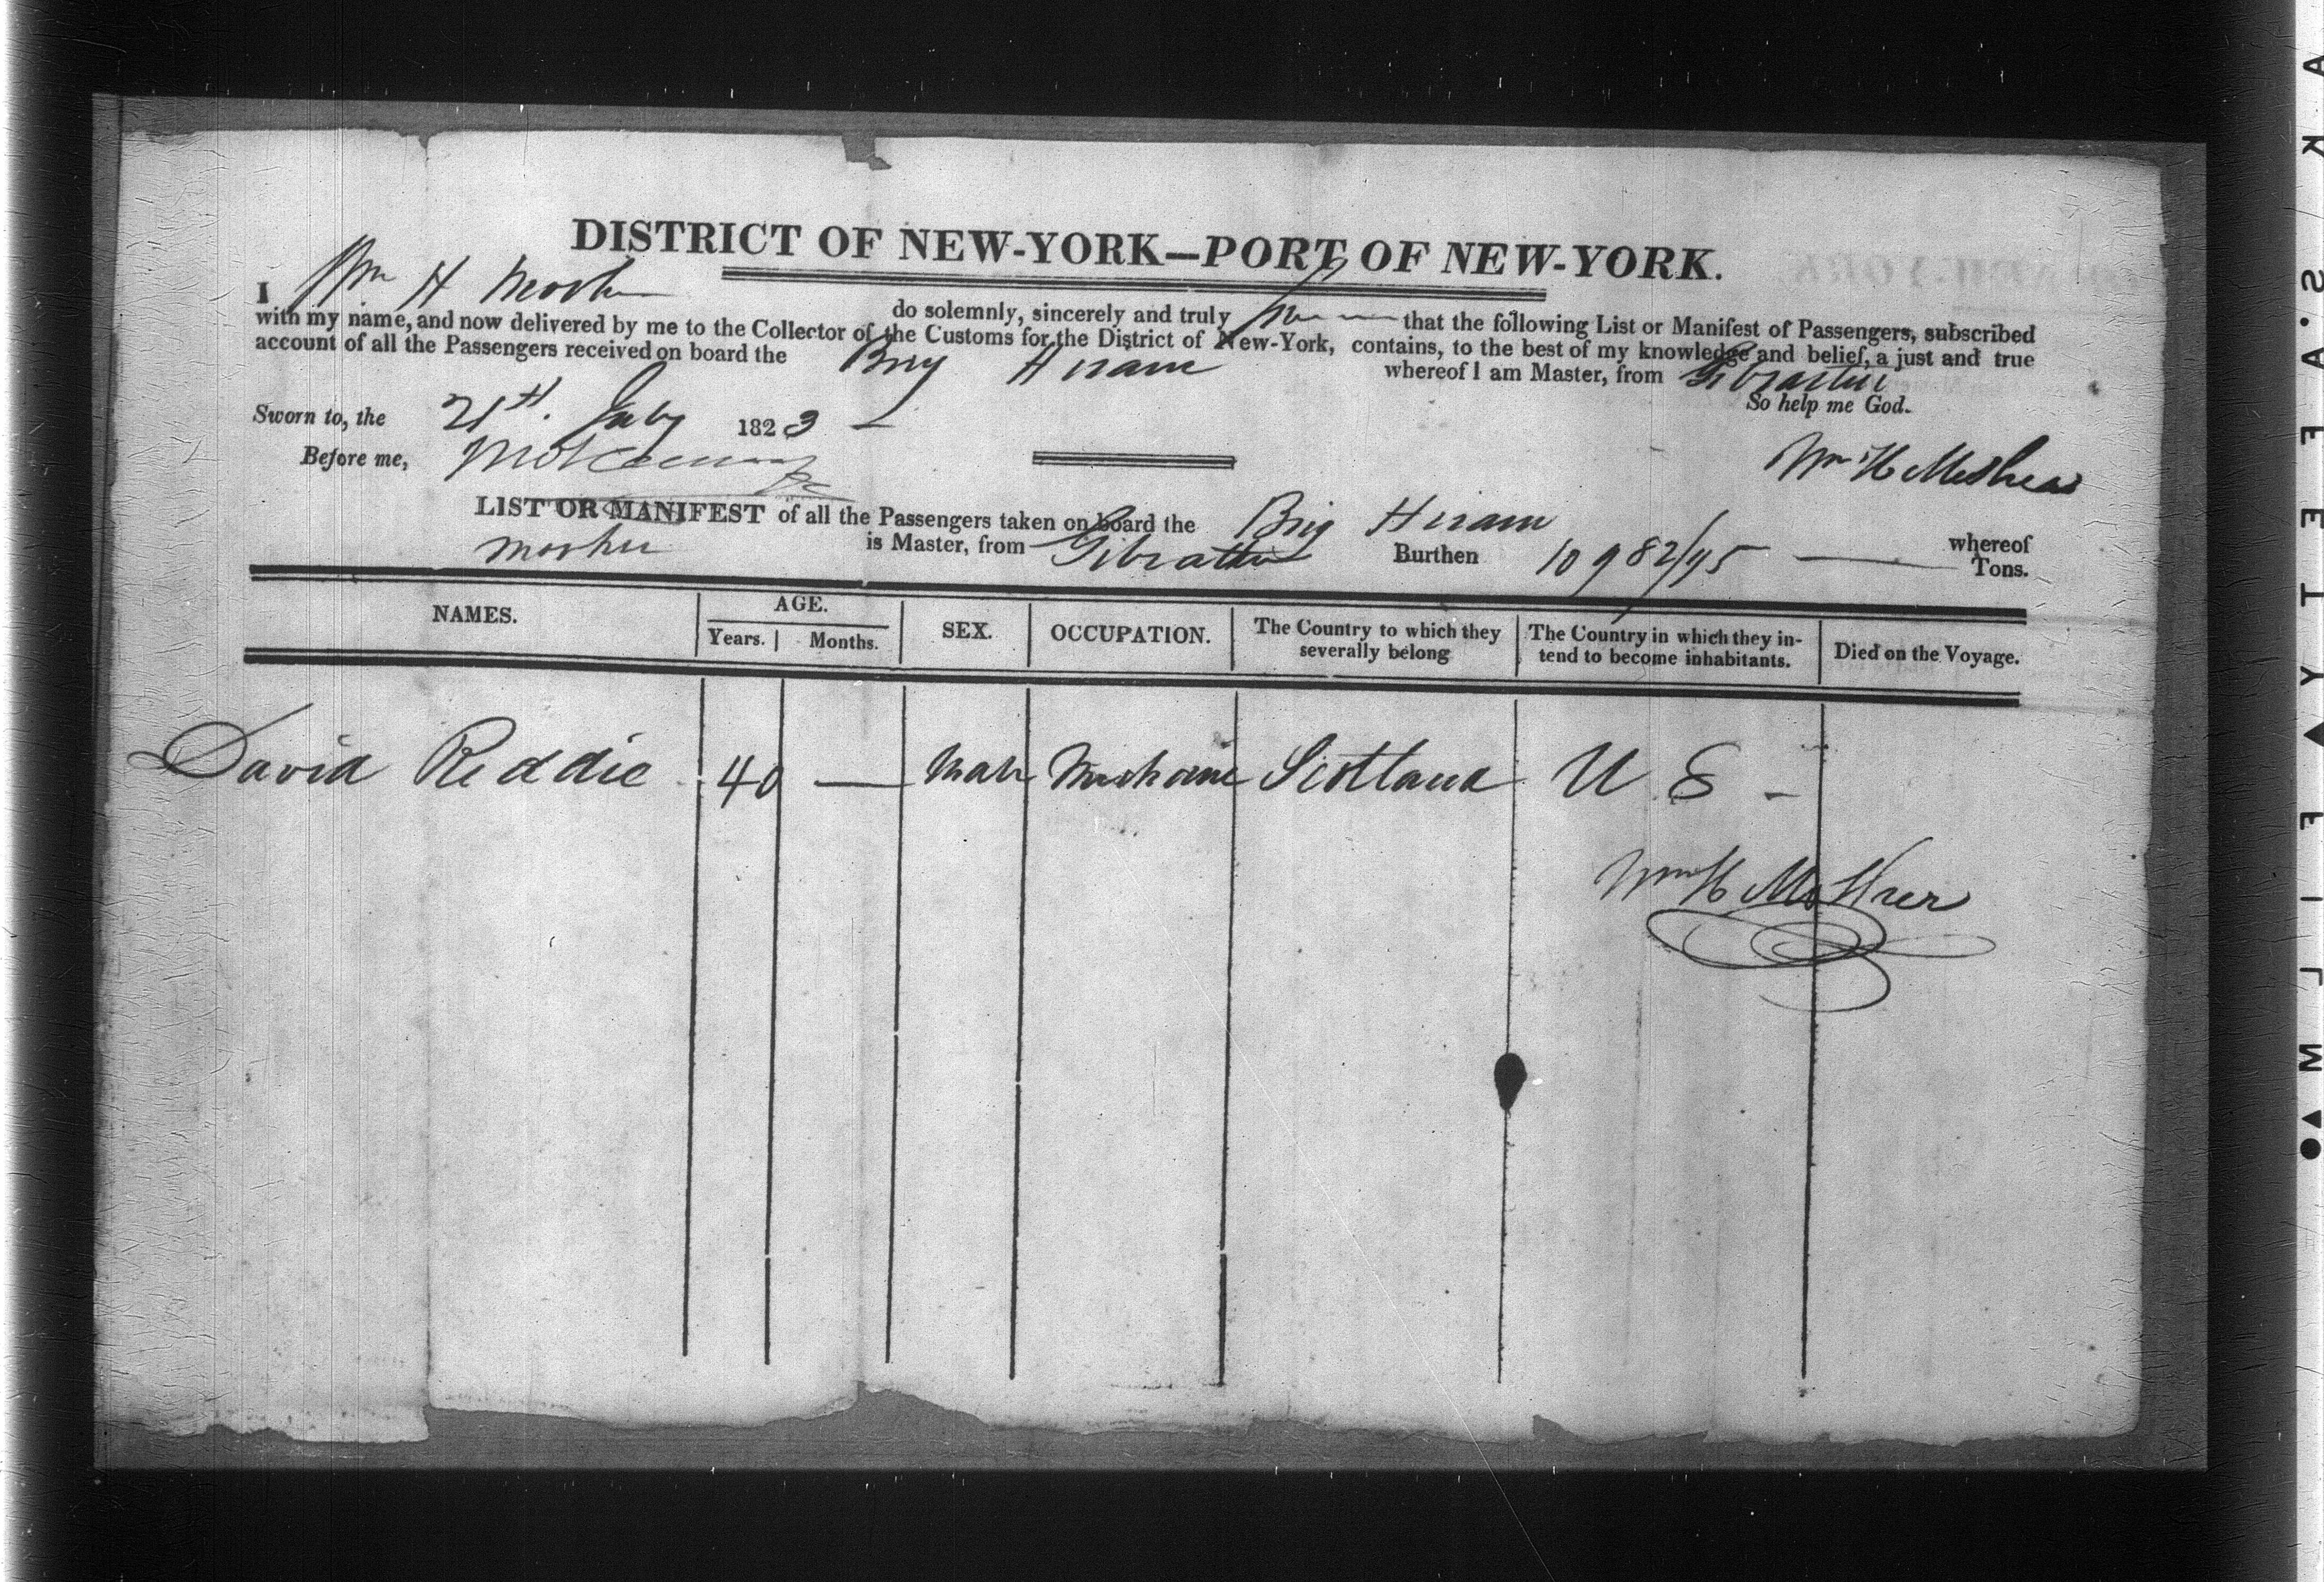 DISTRICT OF NEW-YORK—PORT OF NEW-YORK.
I Wm H Mosher do solemnly, sincerely and truly that the following List or Manifest of Passengers, subscribed
with my name, and now delivered by me to the Collector of the Customs for the District of New-York, contains, to the best of my knowledge and belief, a just and true
account of all the Passengers received on board the Brig Hiram whereof I am Master, from Gibraltar
So help me God.
Sworn to, the 21st. July 1823
Before me,
Wm H Mosher
LIST OR MANIFEST of all the Passengers taken on board the Brig Hiram whereof
Mosher is Master, from Gibralter Burthen 109 82/95 Tons.
NAMES. AGE. SEX. OCCUPATION. The Country to which they severally belong The Country in which they in-tend to become inhabitants. Died on the Voyage.
Years. Months.
David Reddie 40 — Male Scotland U S -
Wm H Mosher